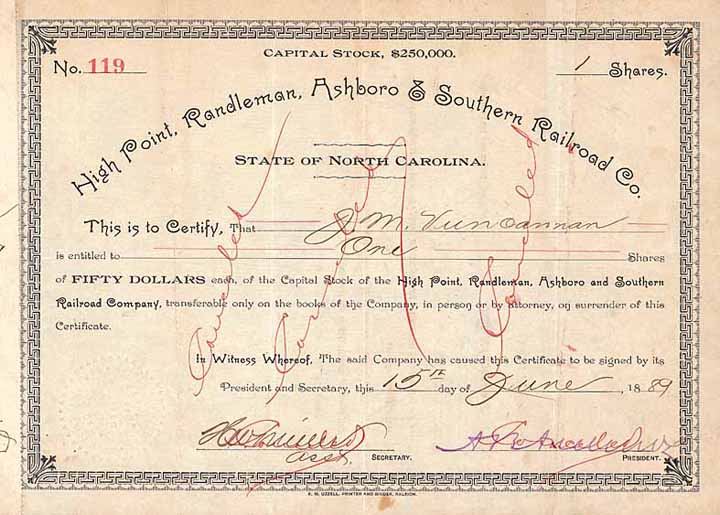 CAPITAL STOCK, $250,000.
No. 119
1 SHARES.
High Point, Randleman, Ashboro & Southern Railroad Co.
STATE OF NORTH CAROLINA.
This is to Certify, That J. M. Vuncannan
is entitled to One Shares
of FIFTY DOLLARS each, of the Capital Stock of the High Point, Randleman, Ashboro and Southern
Railroad Company, transferable only on the books of the Company, in person or by attorney, on surrender of this
Certificate.
In Witness Whereof, The said Company has caused this Certificate to be signed by its
President and Secretary, this 15th day of June, 1889
Asst. SECRETARY.
PRESIDENT.
Canceled
Canceled
Canceled
E. M. UZZELL, PRINTER AND BINDER, RALEIGH.